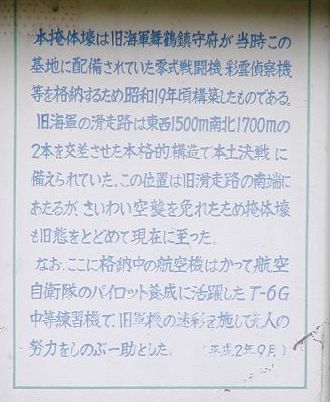 本掩体壕は旧海軍舞鶴鎮守府が当時この
基地に配備されていた零式戦闘機彩雲偵察機
等を格納するため昭和19年頃構築したものである。
旧海軍の滑走路は東西1500m南北1700mの
2本を交差させた本格的構造で本土決戦に
備えられていた。この位置は旧滑走路の南端に
あたるが、さいわい空襲を免れたため掩体壕
も旧態をとどめて現在に至った。
なお、ここに格納中の航空機はかつて航空
自衛隊のパイロット養成に活躍したT-6G
中等練習機で、旧軍機の迷彩を施して先人の
努力をしのぶ一助とした。 (平成2年9月)